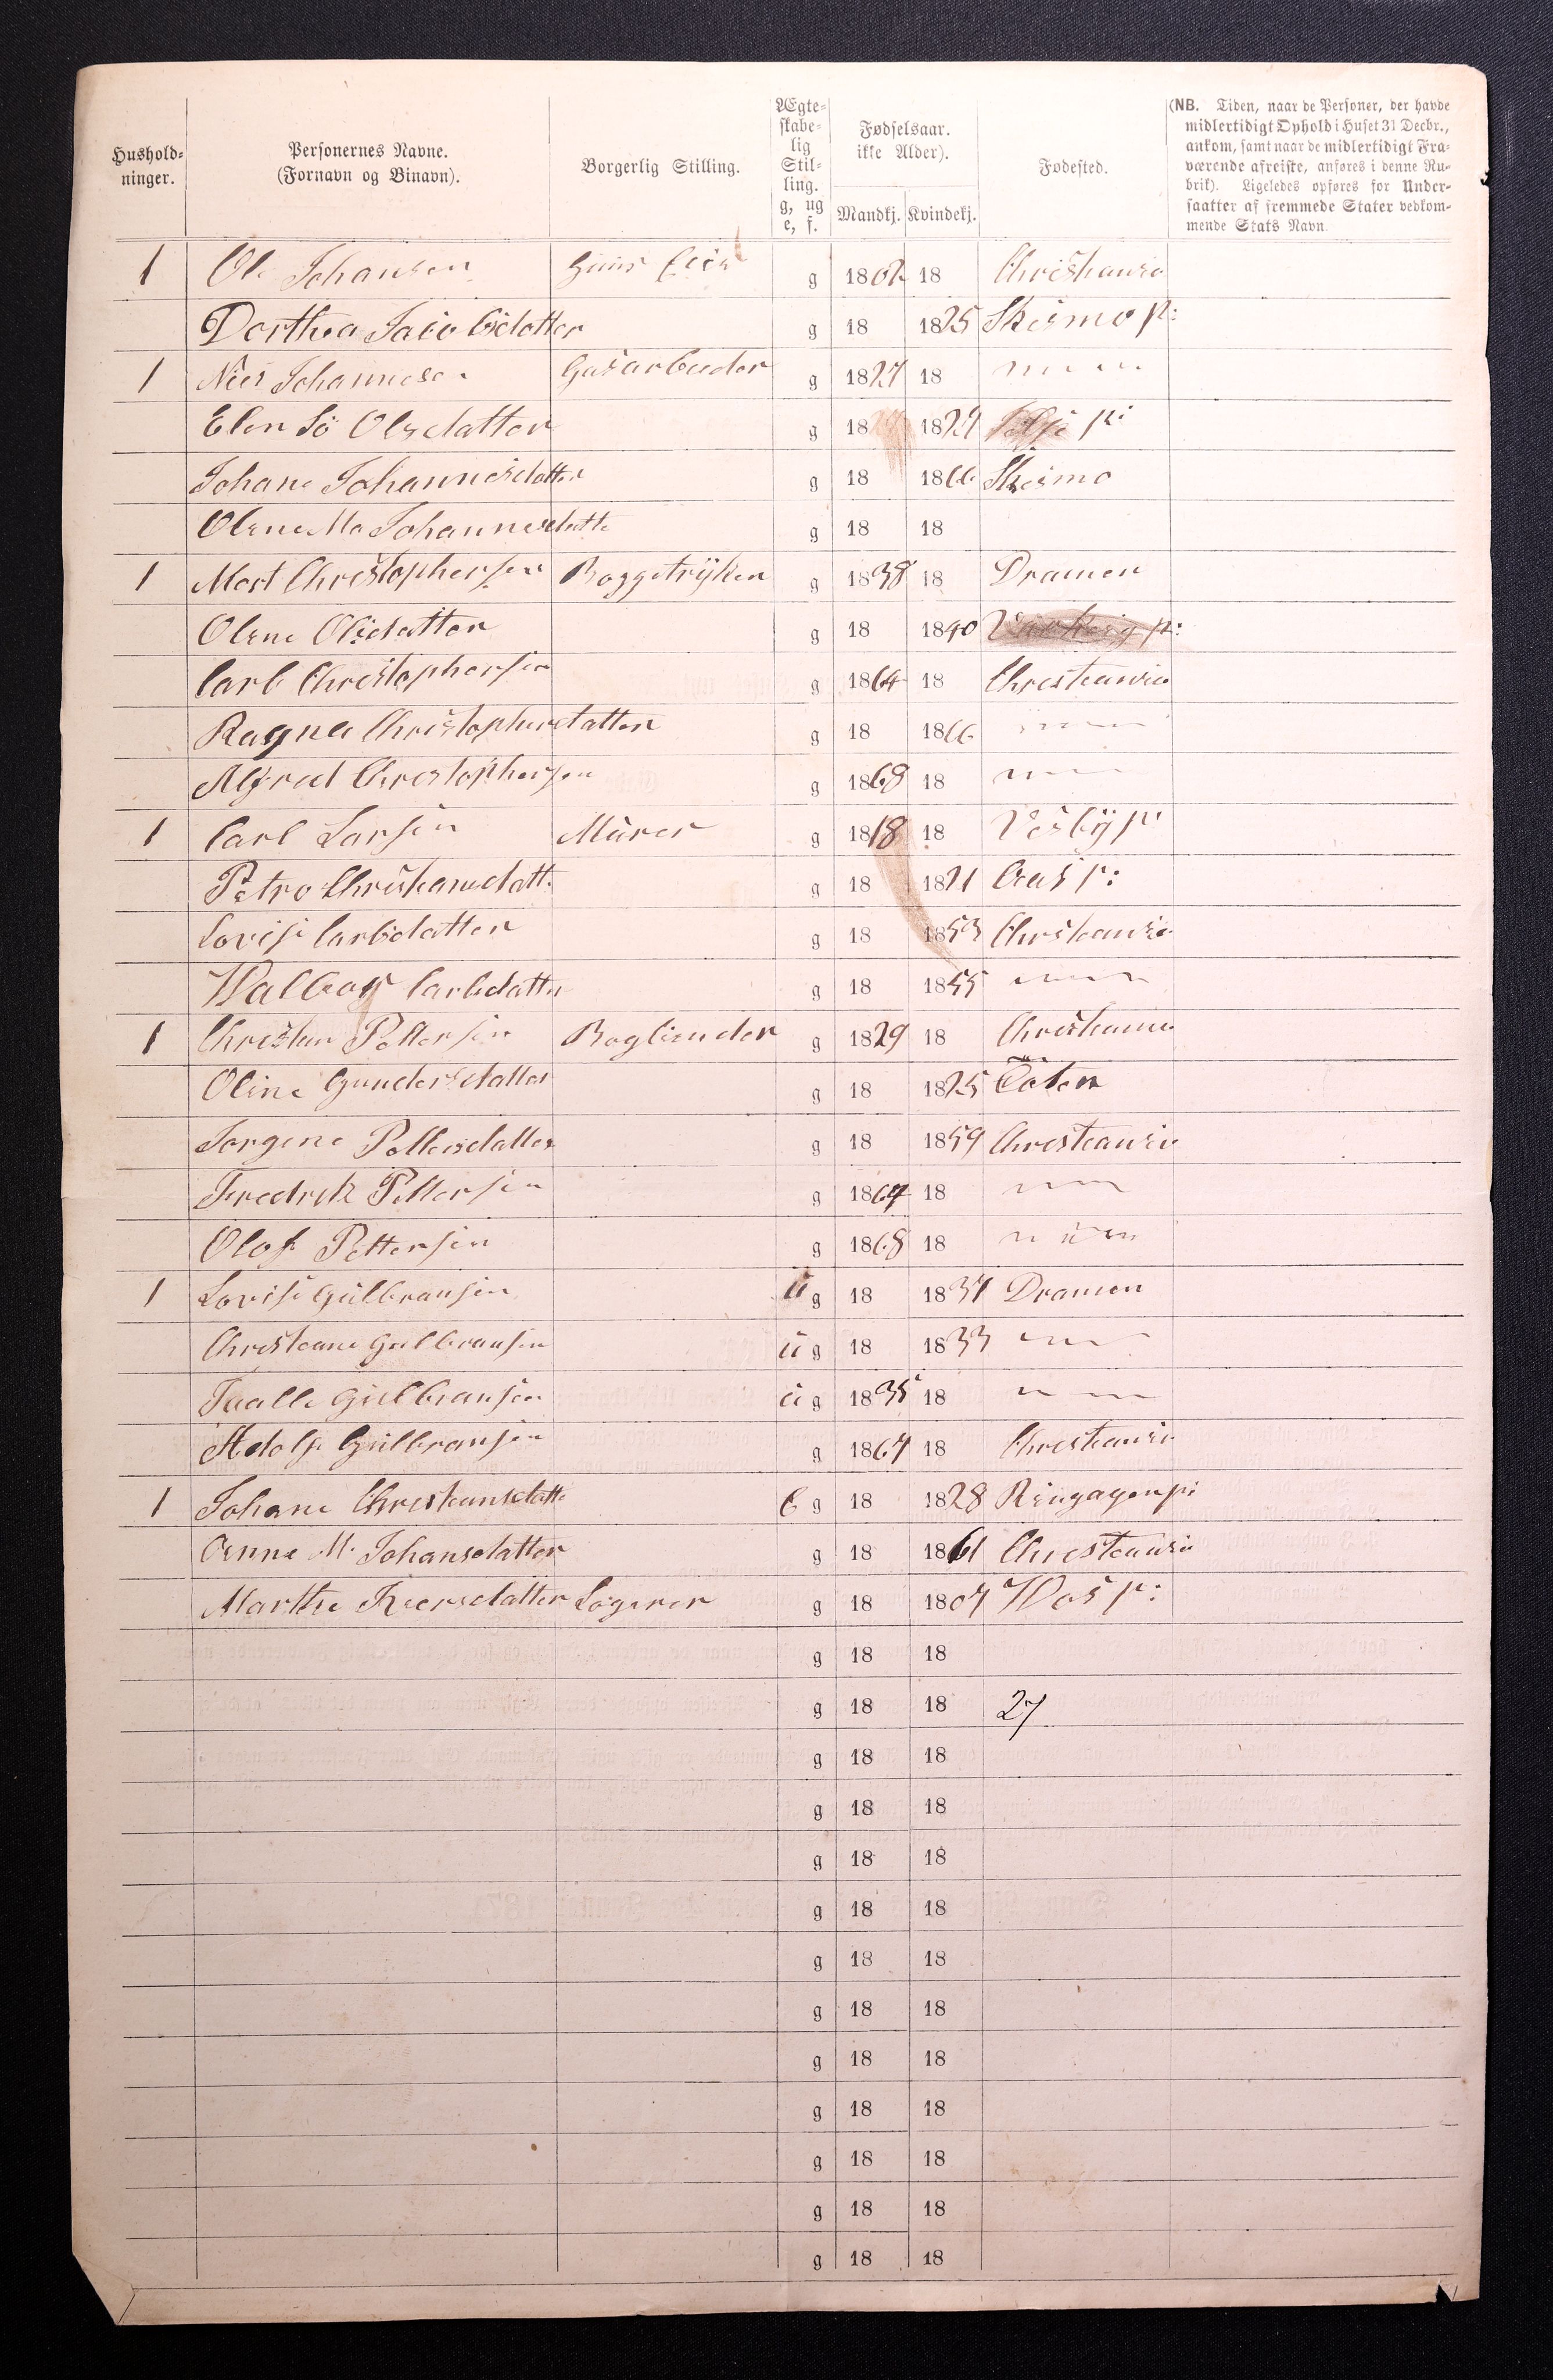 Hushold-
ninger.
Personernes Navne.
(Fornavn og Binavn).
Borgerlig Stilling.
Ægte-
skabe-
lig
Stil-
ling.
g, ug
e, f.
Fødselsaar.
ikke Alder).
Mandkj. Kvindekj.
Fødested.
(NB. Tiden, naar de Personer, der havde
midlertidigt Ophold i Huset 31 Decbr.,
ankom, samt naar de midlertidigt Fra-
værende afreiste, anføres i denne Ru-
brik). Ligeledes opføres for Under-
saatter af fremmede Stater vedkom-
mende Stats Navn.
1 Ole Johansen g 1802 18 Christiania
Dorthea Jacobsdatter g 18 1825 Skesmo p:
1 Johannesen Gasarbeider g 1827 18 " "
Elen Olsdatter g 18 1829 p:
Johane Johannesdatter g 18 1866 Skesmo
Olene Ma Johannesdatte g 18 18
1 Christophersen Boggetryker g 1838 18 Dramen
Olene Olsdatter g 18 1840
Carl Christophersen g 1864 18 Christiania
Ragna Christophersdatter g 18 1866 " "
Alfred Christophersen g 1868 18 " "
1 Carl Larsen Mürer g 1818 18 Vesby p:
Petro Christiansdatt: g 18 1821 Aas p:
Lovise Carlsdatter g 18 1853 Christiania
Walborg Carlsdatter g 18 1855 " "
1 Christian Pettersen Bogbinder g 1829 18 Christiania
Oline Gundersdatter g 18 1825 Toten
Jorgine Pettersdatter g 18 1859 Christiania
Fredrik Pettersen g 1864 18 " "
Olaf Pettersen g 1868 18 " "
1 Lovise Gulbransen ug 18 1837 Dramen
Christiane Gulbransen ug 18 1833 " "
Gulbransen ug 1835 18 " "
Adolf Gulbransen g 1867 18 Christiania
1 Johane Christiansdatte E g 18 1828 p:
Anne M. Johansdatter g 18 1861 Christiania
Marthe Iversdatter Logerer g 18 1807 Wos p:
g 18 18
g 18 18 27
g 18 18
g 18 18
g 18 18
g 18 18
g 18 18
g 18 18
g 18 18
g 18 18
g 18 18
g 18 18
g 18 18